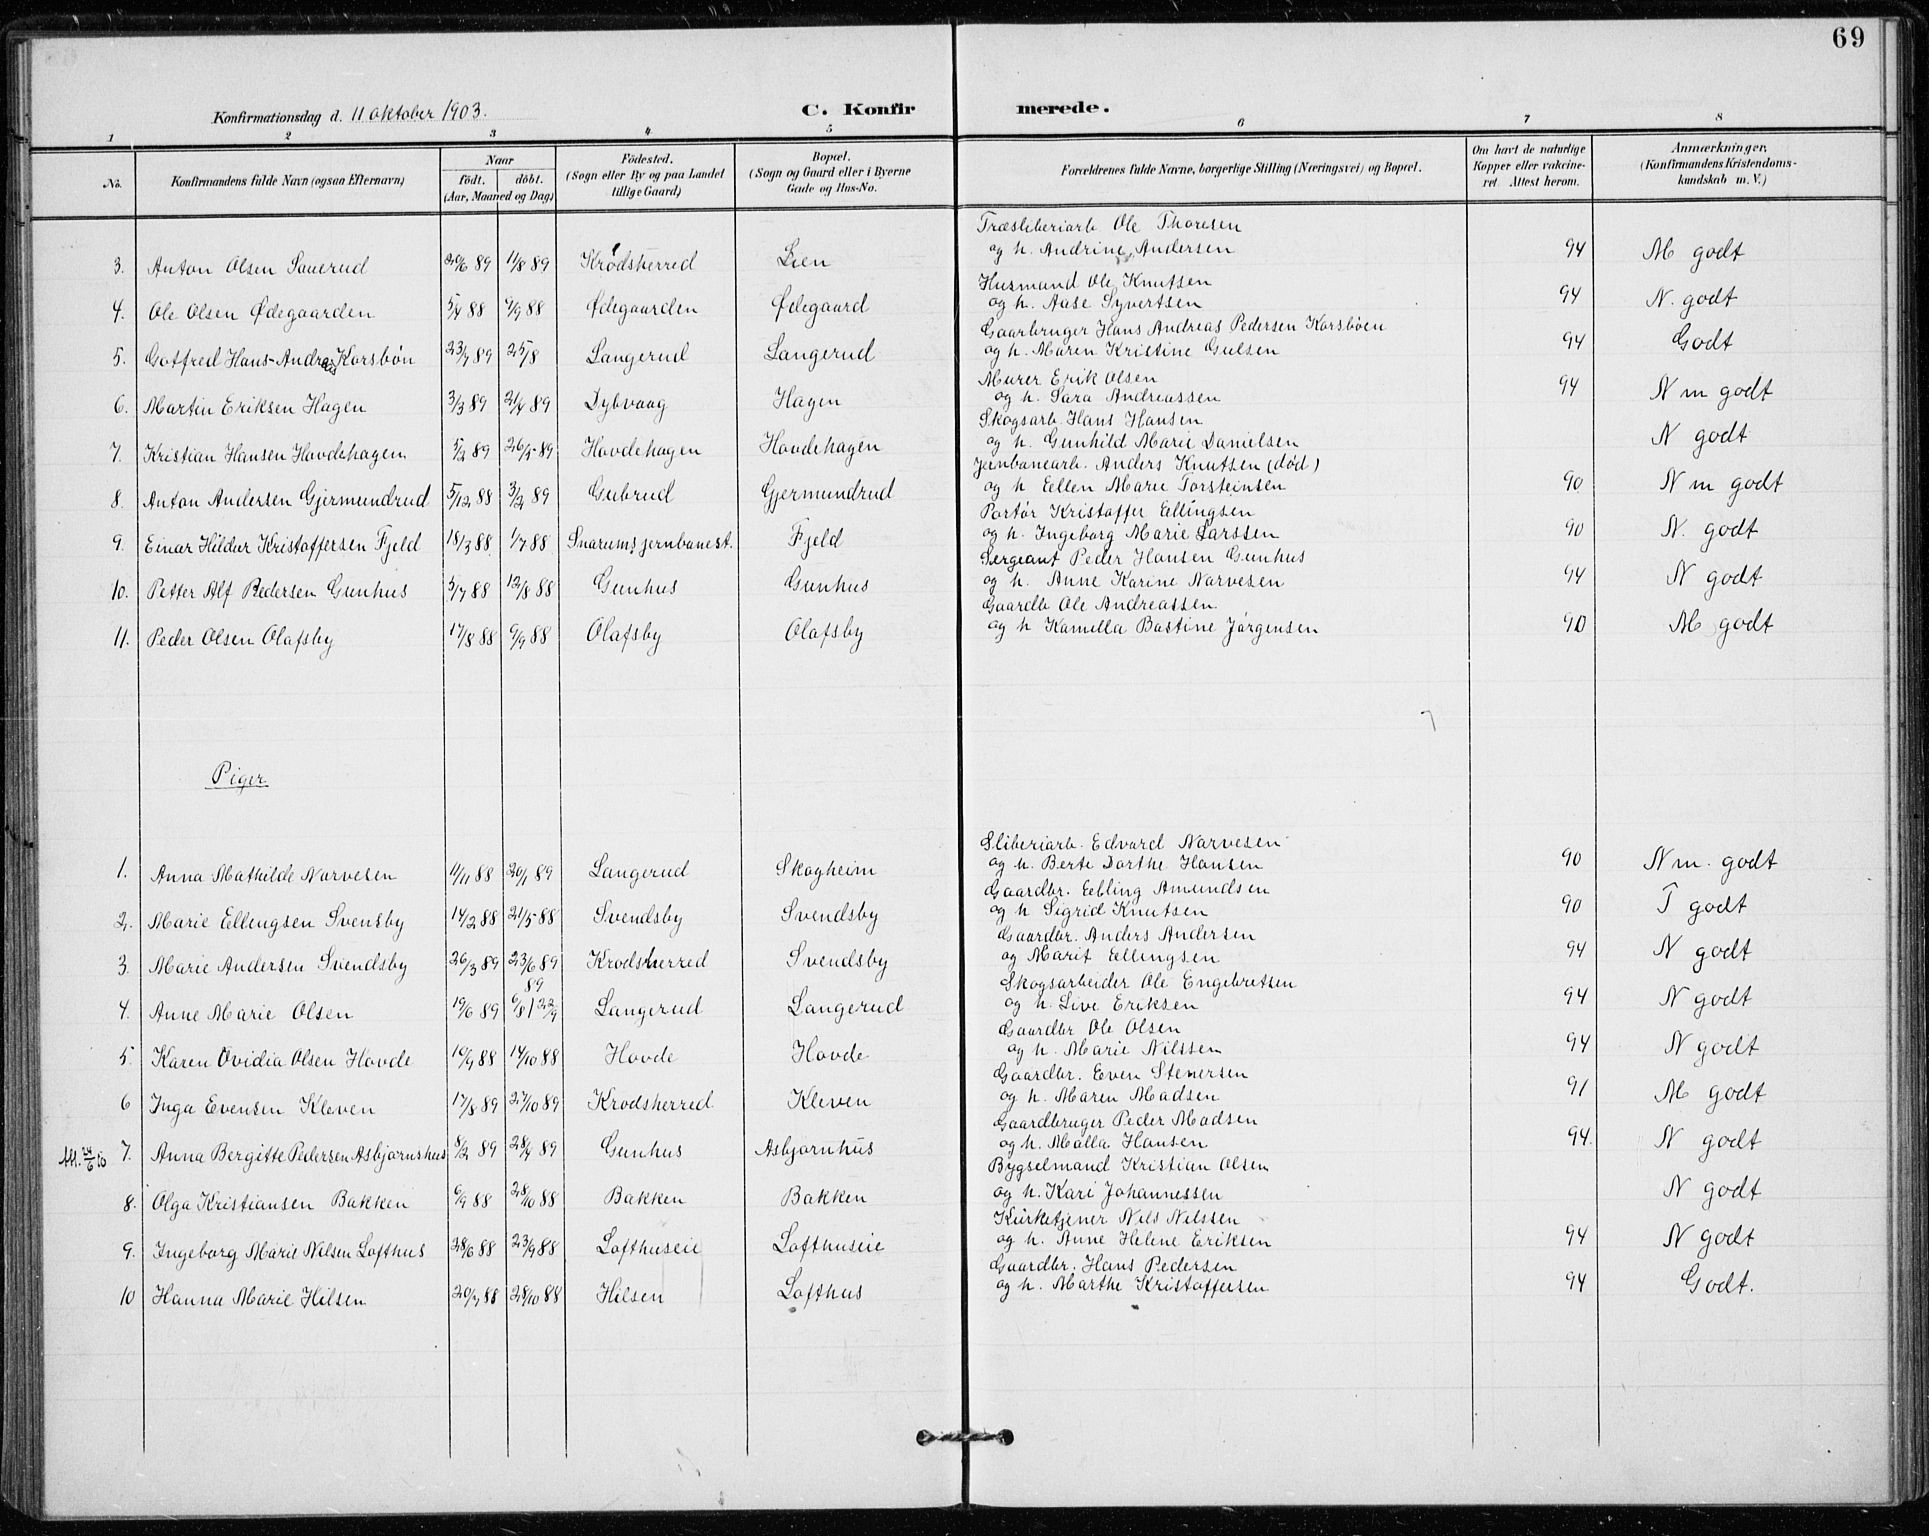 69
Konfirmationsdag d. 11 Oktober 1903.
C. Konfirmerede.
1 2 3 4 5 6 7 8
No. Konfirmandens fulde Navn (ogsaa Efternavn) Naar födt. döbt. (Aar, Maaned og Dag) Födested. (Sogn eller By og paa Landet tillige Gaard) Bopæl. (Sogn og Gaard eller i Byerne Gade og Hus-No. Forældrenes fulde Navne, borgerlige Stilling (Næringsvei) og Bopæl. Om havt de naturlige Kopper eller vakcineret. Attest herom. Anmærkninger. (Konfirmandens Kristendomskundskab m. V.)
Træsliberiarb Ole Thoresen
3. Anton Olsen Sauerud 20/6 89 11/8 89 Krødsherred Lien og h. Andrine Andersen 94 M godt
Husmand Ole Knutsen
4. Ole Olsen Ødegaarden 5/4 88 9/9 88 Ødegaarden Ødegaard og h. Aase Syvertsen 94 N. godt
Gaarbruger Hans Andreas Pedersen Korsbøen
5. Gotfred Hans-Andreas Korsbøn 23/7 89 25/8 Langerud Langerud og h. Maren Kristine Gulsen 94 Godt
Murer Erik Olsen
6. Martin Eriksen Hagen 3/3 89 21/4 89 Dybvaag Hagen og h. Sara Andreassen 94 N m godt
Skogsarb. Hans Hansen
7. Kristian Hansen Hovdehagen 5/2 89 26/5 89 Hovdehagen Hovdehagen og h. Gunhild Marie Danielsen N godt
Jernbanearb. Anders Knutsen (død)
8. Anton Andersen Gjermundrud 5/12 88 3/2 89 Gubrud Gjermundrud og h Ellen Marie Torsteinsen 90 N m godt
Portør Kristoffer Ellingsen
9. Einar Hildur Kristoffersen Fjeld 18/3 88 1/7 88 Snarums jernbanest. Fjeld og h. Ingeborg Marie Larssen 90 N. godt
Sergeant Peder Hansen Gunhus
10. Petter Alf Pedersen Gunhus 5/7 88 12/8 88 Gunhus Gunhus og h. Anne Karine Narvesen 94 N godt
Gaardb Ole Andreassen
11. Peder Olsen Olafsby 17/8 88 9/9 88 Olafsby Olafsby og h Kamella Bastine Jørgensen 90 M godt
Piger
Sliberiarb. Edvard Narvesen
1. Anna Mathilde Narvesen 11/11 88 20/1 89 Langerud Skogheim og h. Berte Dorthe Hansen 90 N m. godt
Gaardbr. Elling Amundsen
2. Marie Ellingsen Svensby 14/2 88 21/5 88 Svendsby Svendsby og h Sigrid Knutsen 90 T godt
Gaardbr. Anders Andersen
3. Marie Andersen Svendsby 26/3 89 23/6 89 Krodsherred Svendsby og Marit Ellingsen 94 N godt
Skogsarbeider Ole Engebretsen
4. Anne Marie Olsen 19/6 89 6/8 89 22/9 Langerud Langerud og h. Live Eriksen 94 N godt
Gaardbr Ole Olsen
5 Karen Ovidia Olsen Hovde 19/9 88 14/10 88 Hovde Hovde og h. Marie Nilssen 94 N godt
Gaardbr. Even Stenersen
6 Inga Evensen Kleven 17/8 89 27/10 89 Krodsherred Kleven og h. Maren Madsen 91 M godt
Gaardbruger Peder Madsen
7. Anna Bergitte Pedersen Asbjørnshus 8/2 89 28/4 89 Gunhus Asbjørnhus og h. Malla Hansen 94. N godt
Bygselmand Kristian Olsen
8. Olga Kristiansen Bakken 6/9 88 28/10 88 Bakken Bakken og h. Kari Johannessen N godt
Kirketjener Nils Nilssen
9. Ingeborg Marie Nilsen Lofthus 28/6 88 23/9 88 Lofthuseie Lofthuseie og h. Anne Helene Eriksen 94 N godt
Gaardbr. Hans Pedersen
10 Hanna Marie Hilsen 20/7 88 28/10 88 Hilsen Lofthus og h. Marthe Kristoffersen 94 Godt.